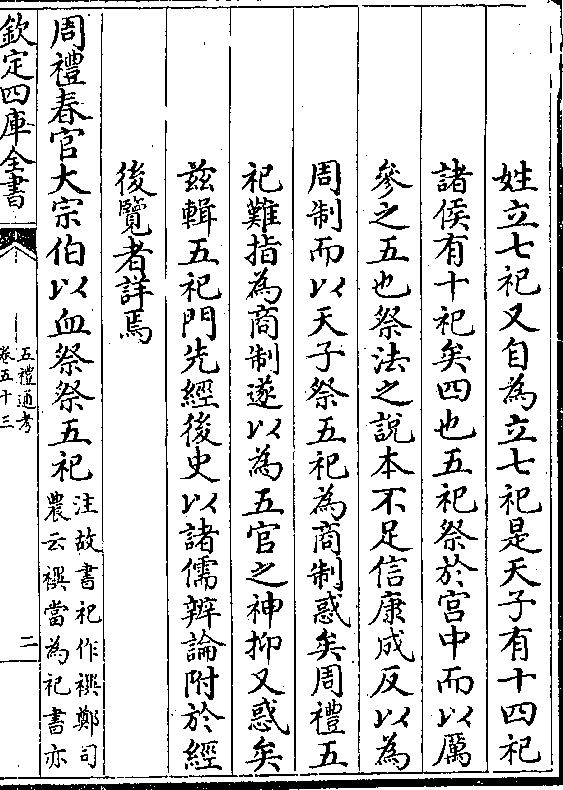 姓立七祀又自為立七祀是天子有十四祀
諸侯有十祀矣四也五祀祭於宫中而以厲
參之五也祭法之說本不足信康成反以為
周制而以天子祭五祀為商制惑矣周禮五
祀難指為商制遂以為五官之神抑又惑矣
兹輯五祀門先經後史以諸儒辨論附於經
後覽者詳焉
周禮春官大宗伯以血祭祭五祀
注故書祀作禩鄭司
農云禩當為祀書亦
欽定四庫全書
五禮通考
卷五十三
二